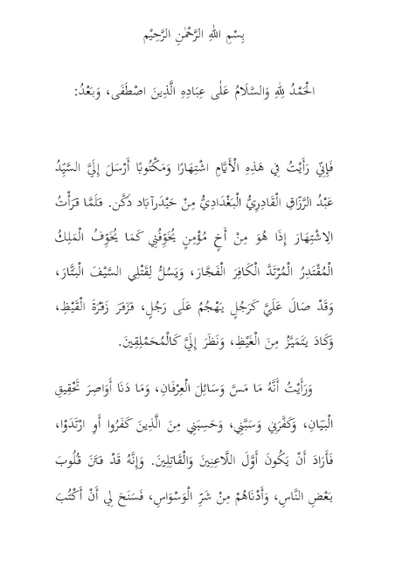 بِسْمِ اللهِ الرَّحْمٰنِ الرَّحِيْمِ
الْحَمْدُ لِلهِ وَالسَّلَامُ عَلٰى عِبَادِهِ الَّذِينَ اصْطَفَى، وَبَعْدُ:
فَإِنِّي رَأَيْتُ فِي هَذِهِ الْأَيَّامِ اشْتِهَارًا وَمَكْتُوبًا أَرْسَلَ إِلَيَّ السَّيِّدُ
عَبْدُ الرَّزَّاقِ الْقَادِرِيُّ الْبَغْدَادِيُّ مِنْ حَيْدَرآبَاد دَكَّن. فَلَمَّا قرَأْتُ
الِاشْتِهَارَ إِذَا هُوَ مِنْ أَخٍ مُؤْمِنٍ يُخَوِّفُنِي كَمَا يُخَوِّفُ الْمَلِكُ
الْمُقْتَدِرُ الْمُرْتَدَّ الْكَافِرَ الْفَجَّارَ، وَيَسُلُّ لِقَتْلِي السَّيْفَ الْبتَّارَ،
وَقَدْ صَالَ عَلَيَّ كَرَجُلٍ يَهْجُمُ عَلَى رَجُلٍ، فزَفرَ زَفْرَةَ الْقَيْظِ،
وَكَادَ يَتَمَيَّزُ مِنَ الْغَيْظِ، وَنَظَرَ إِلَيَّ كَالْمُحَمْلِقِينَ.
وَرَأَيْتُ أَنَّهُ مَا مَسَّ وَسَائِلَ الْعِرْفَانِ، وَمَا دَنَا أَوَاصِرَ تَحْقِيقِ
الْبَيَانِ، وَكَفَّرَنِي وَسَبَّنِي، وَحَسِبَنِي مِنَ الَّذِينَ كَفَرُوا أَوِ ارْتَدَوْا،
فَأَرَادَ أَنْ يَكُونَ أَوَّلَ اللَّاعِنِينَ وَالْقَاتِلِينَ. وَإِنَّهُ قَدْ فتَنَ قُلُوبَ
بَعْضِ النَّاسِ، وَأَدْنَاهُمْ مِنْ شَرِّ الْوَسْوَاسِ، فَسَنَحَ لِي أَنْ أَكْتُبَ